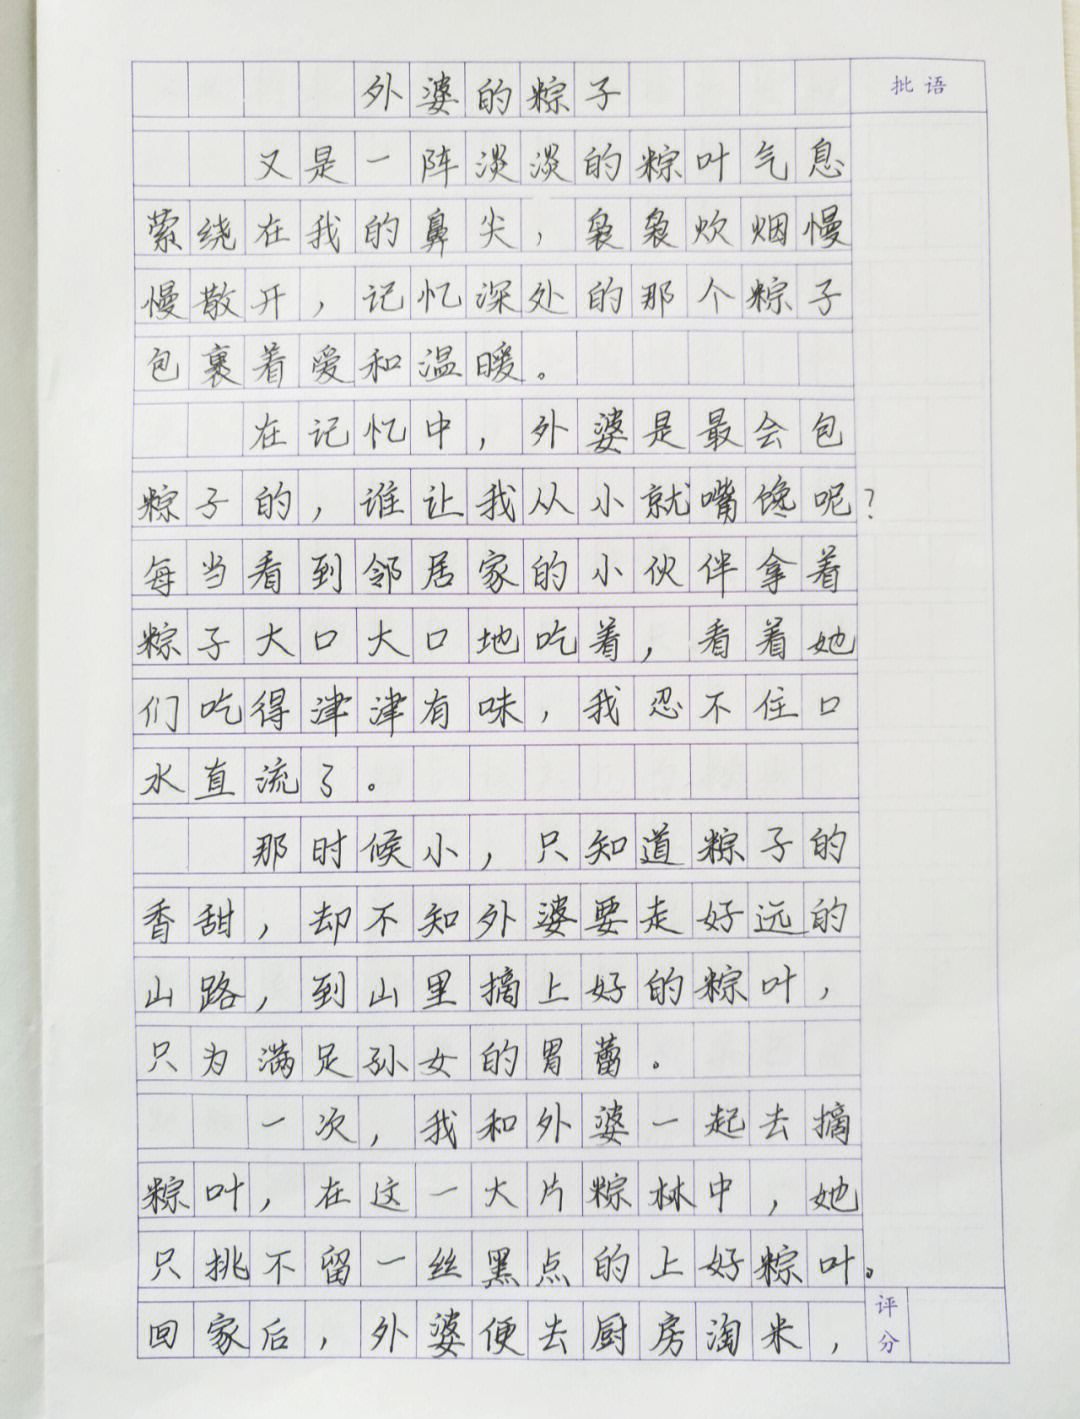 外婆的粽子
批语
又是一阵淡淡的粽叶气息
萦绕在我的鼻尖，袅袅炊烟慢
慢散开，记忆深处的那个粽子
包裹着爱和温暖。
在记忆中，外婆是最会包
粽子的，谁让我从小就嘴馋呢？
每当看到邻居家的小伙伴拿着
粽子大口大口地吃着，看着她
们吃得津津有味，我忍不住口
水直流了。
那时候小，只知道粽子的
香甜，却不知外婆要走好远的
山路，到山里摘上好的粽叶，
只为满足孙女的胃蕾。
一次，我和外婆一起去摘
粽叶，在这一大片粽林中，她
只挑不留一丝黑点的上好粽叶。
回家后，外婆便去厨房淘米，
评分